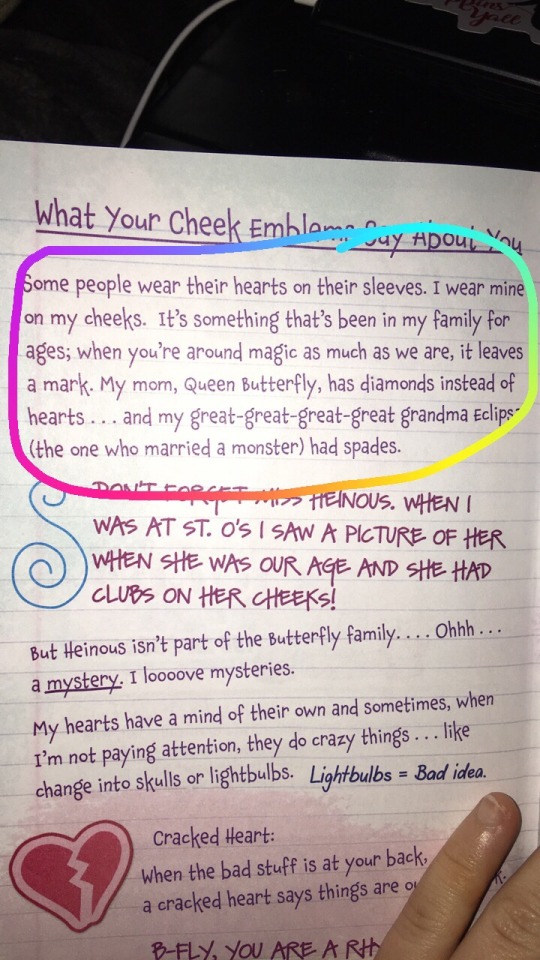 Yall
What Your Cheek Emblems Say About You
Some people wear their hearts on their sleeves. I wear mine
on my cheeks. It's something that's been in my family for
ages; when you're around magic as much as we are, it leaves
a mark. My mom, Queen Butterfly, has diamonds instead of
hearts . . . and my great-great-great-great grandma Eclipsa
(the one who married a monster) had spades.
DON'T FORGET MISS HEINOUS. WHEN I
WAS AT ST. O'S I SAW A PICTURE OF HER
WHEN SHE WAS OUR AGE AND SHE HAD
CLUBS ON HER CHEEKS!
But Heinous isn't part of the Butterfly family. . . . Ohhh . . .
a mystery. I loooove mysteries.
My hearts have a mind of their own and sometimes, when
I'm not paying attention, they do crazy things . . . like
change into skulls or lightbulbs. Lightbulbs = Bad idea.
Cracked Heart:
When the bad stuff is at your back,
a cracked heart says things are
B-FLY, YOU ARE A